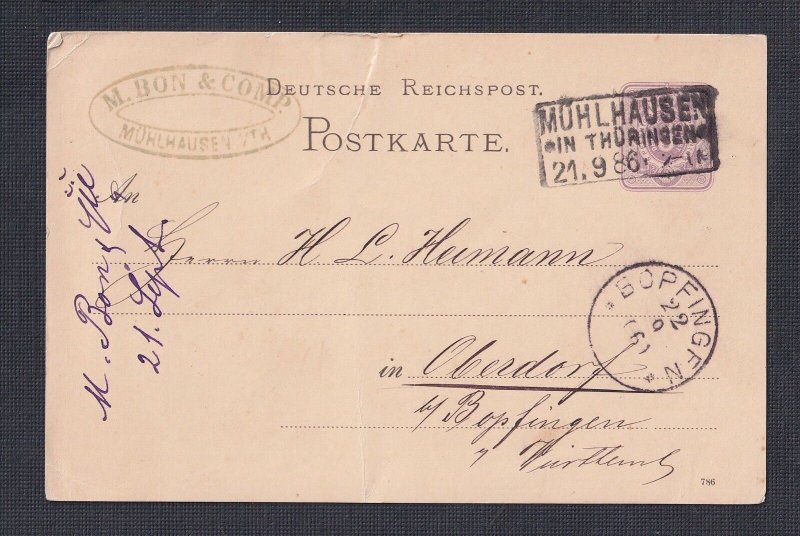 M. BON & COMP.
MÜHLHAUSEN i/TH
DEUTSCHE REICHSPOST.
POSTKARTE.
MÜHLHAUSEN
IN THÜRINGEN
21. 9 86.
An
Herrn H L. Heimann
in Oberdorf
b/ Bopfingen
Württemb
BOPFINGEN
22
9
M. Bon &
21. Sept.
786